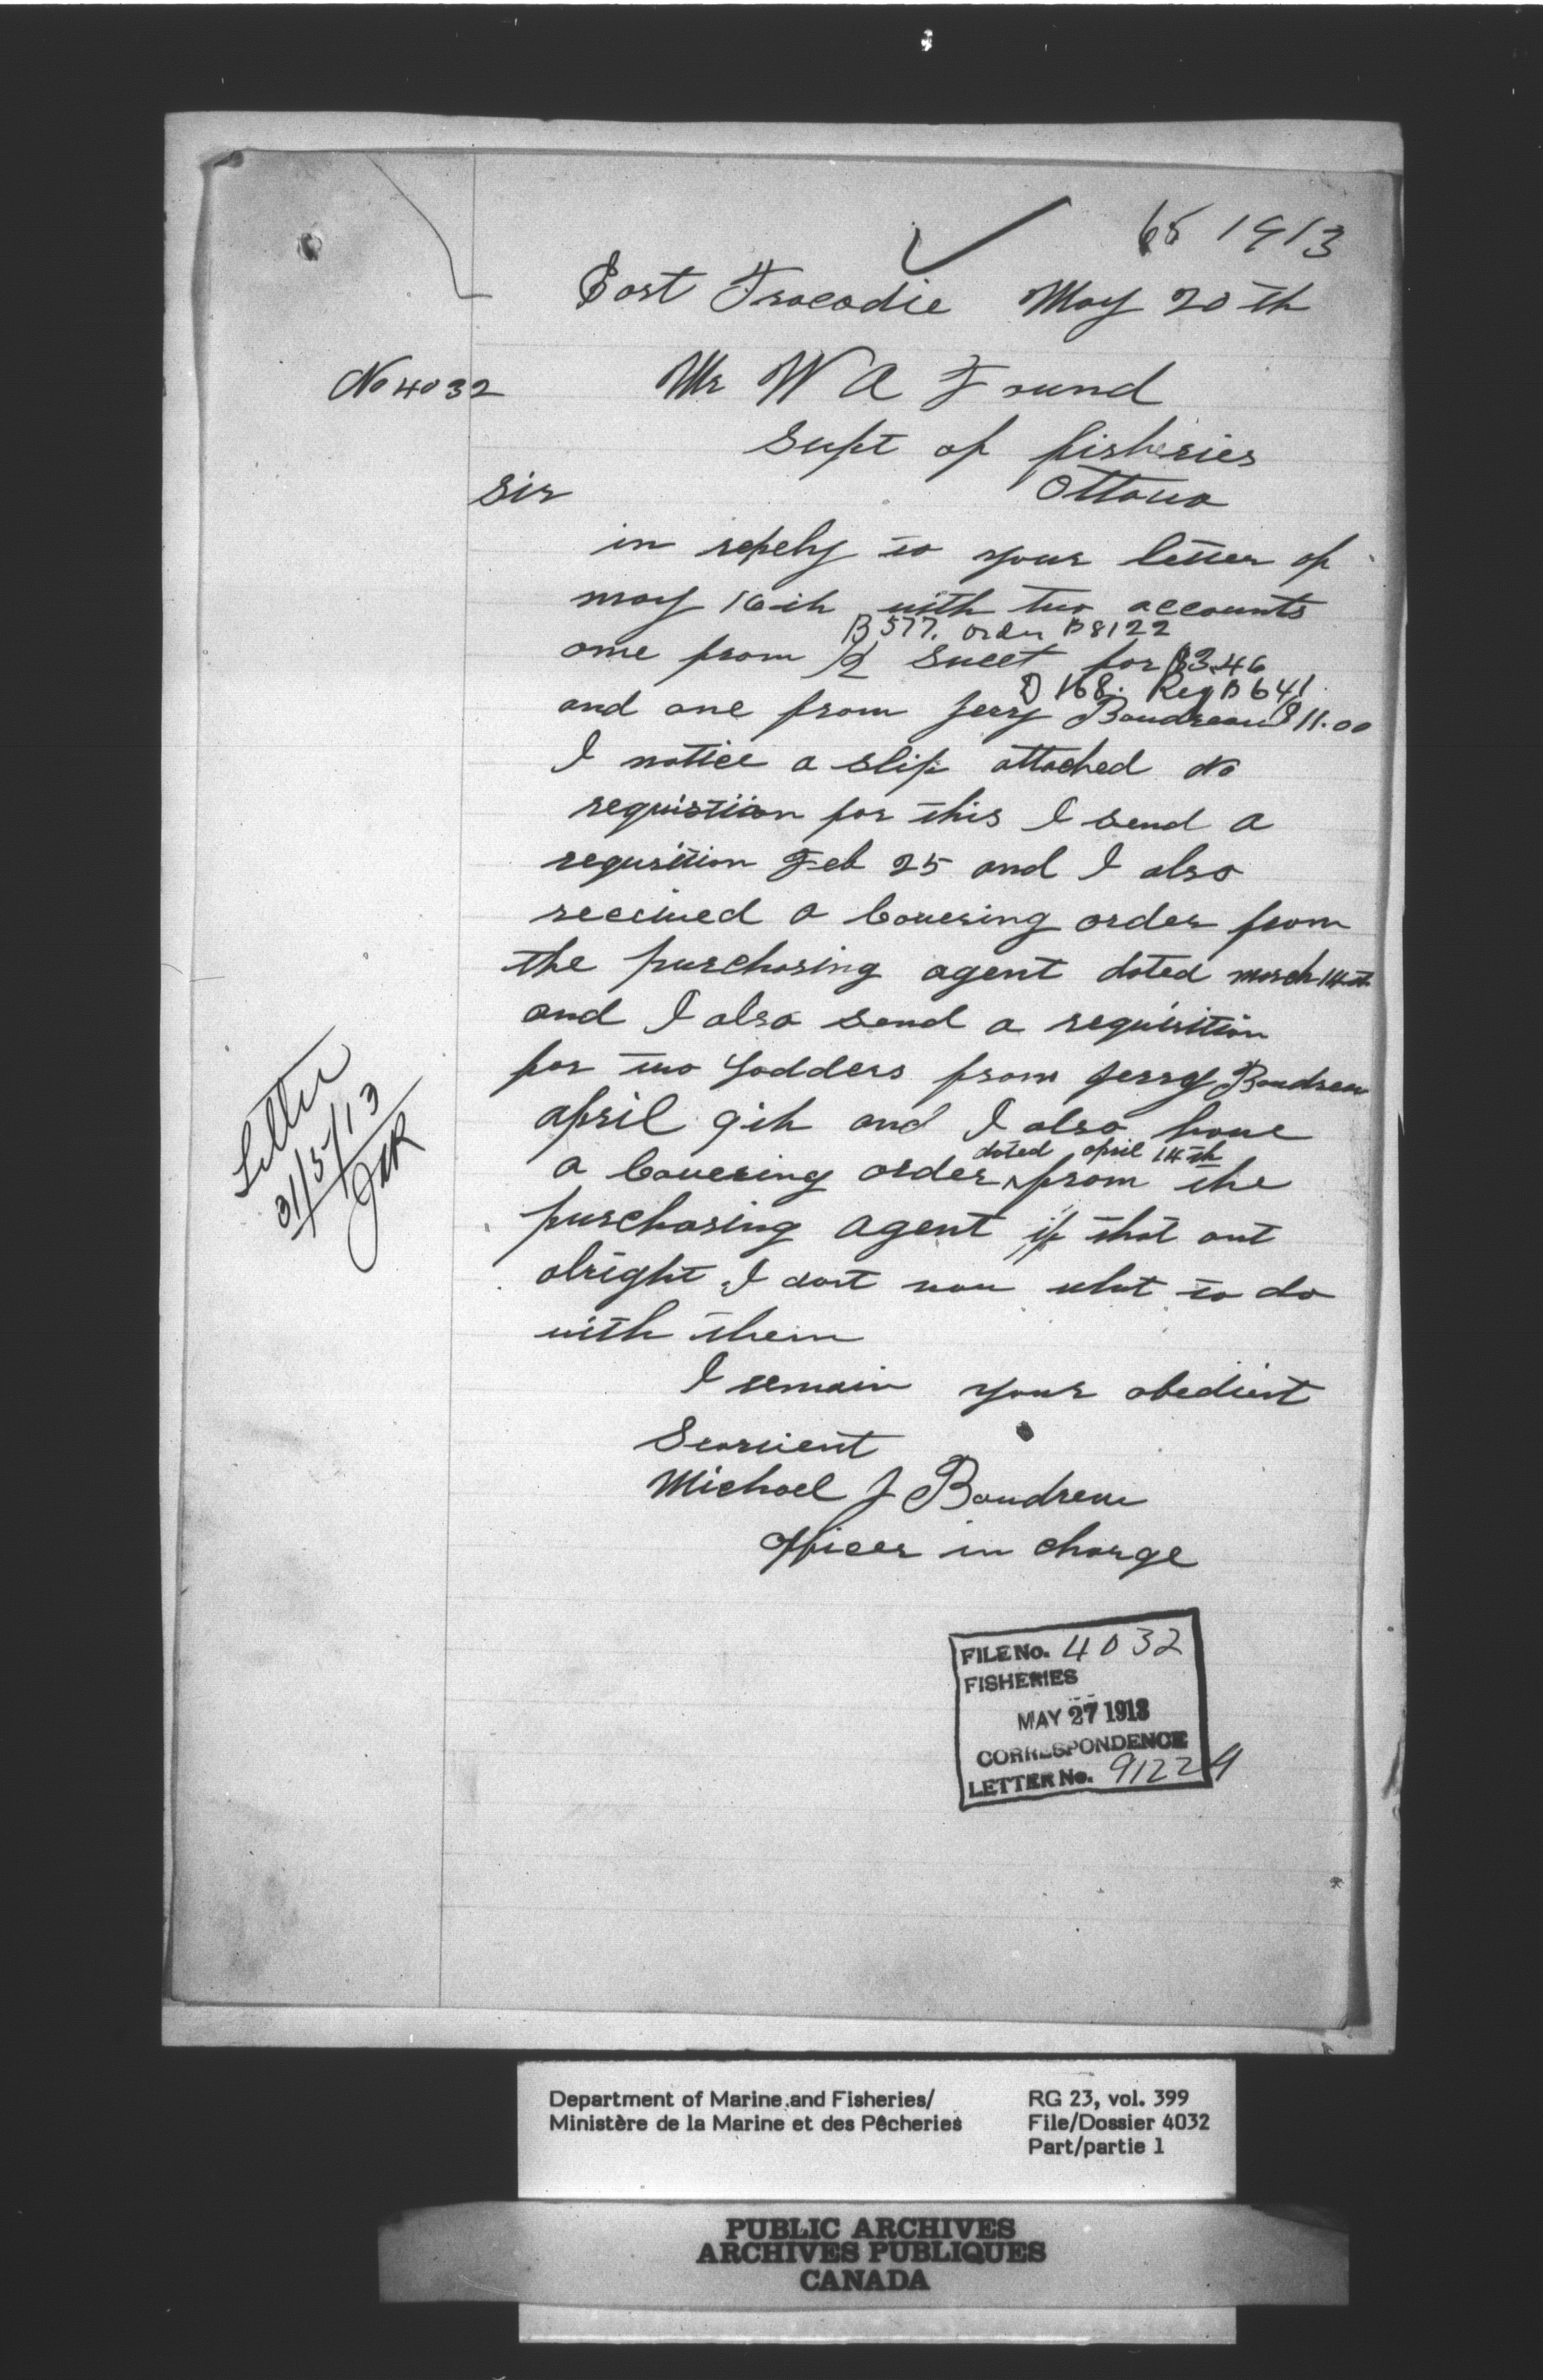 65 1913
East Tracadie May 20th
No 4032
Mr W A Found
Supt of fisheries
Sir Ottawa
in repely to your letter of
may 16th with two accounts
B 577. Order B8122
one from Sweet for $3.46
D 168. Req B 641
and one from Jerry Boudreau $11.00
I notice a slip attached No
requistiion for this I send a
requsition Feb 25 and I also
received a Covering order from
the purchasing agent dated march 14th
and I also send a requisition
for two Ladders from Jerry Boudreau
april 9th and I also have
dated april 14th
a Covering order from the
purchasing agent if that ant
alright I dont now what to do
with them
I remain your obedient
Searvient
Michael J Boudreau
officer in charge
Letter
31/5/13
FILE No. 4032
FISHERIES
MAY 27 1913
CORRESPONDENCE
LETTER No. 91224
Department of Marine and Fisheries/
Ministère de la Marine et des Pêcheries
RG 23, vol. 399
File/Dossier 4032
Part/partie 1
PUBLIC ARCHIVES
ARCHIVES PUBLIQUES
CANADA